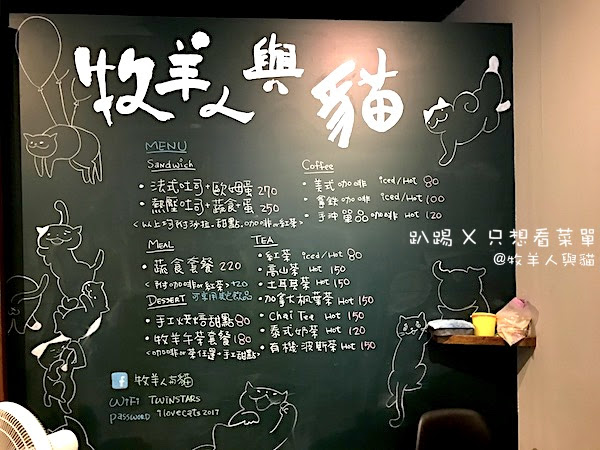 牧羊人與貓
MENU
Sandwich
・法式吐司+歐姆蛋 270
・熱壓吐司+蔬食蛋 250
<以上均附沙拉.甜點.咖啡or紅茶>
MEAL
・蔬食套餐 220
<附咖啡or紅茶>+20
DESSERT 可享用其它飲品
・手工烘焙甜點80
・牧羊午茶套餐180
<咖啡or茶任選+手工甜點>
Coffee
・美式咖啡 iced/Hot 80
・拿鉄咖啡 iced/Hot 100
・手沖單品咖啡 Hot 120
TEA
・紅茶 iced/Hot 80
・高山茶 Hot 150
・土耳其茶 Hot 150
・加拿大楓葉茶 Hot 150
・Chai Tee Hot 150
・泰式奶茶 Hot 120
・有機波斯茶 Hot 150
f 牧羊人与貓
WiFi TWINSTARS
password ilovecats2017
趴踢 X 只想看菜單
@牧羊人與貓